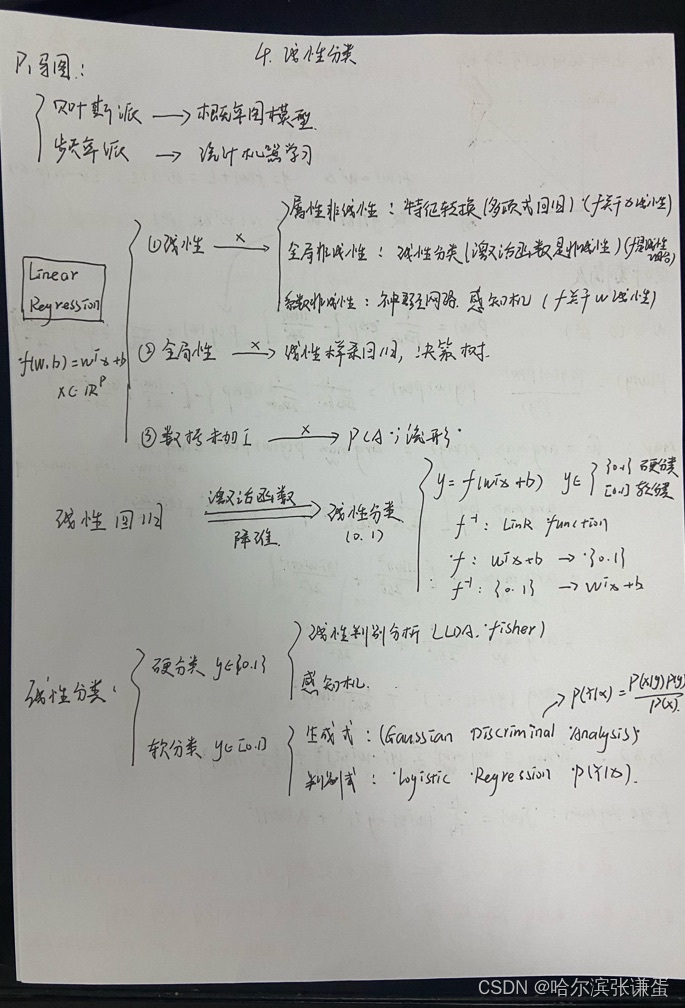 4. 线性分类
P1导图:
贝叶斯派 → 概率图模型.
频率派 → 统计机器学习
Linear
Regression
f(w,b)=wᵀx+b
x∈ℝᵖ
①线性 —x→
属性非线性: 特征转换(多项式回归) (f关于x线性)
全局非线性: 线性分类(激活函数是非线性)
系数非线性: 神经网络. 感知机 (f关于w线性)
②全局性 —x→ 线性样条回归, 决策树.
③数据未加工 —x→ PCA; 流形
线性回归 激活函数 降维 → 线性分类 (0.1)
y=f(wᵀx+b) y∈ {0.1} 硬分类 [0.1] 软分类
f⁻¹: Link function
f: wᵀx+b → {0.1}
f⁻¹: {0.1} → wᵀx+b
线性分类
硬分类 y∈{0.1}
线性判别分析 (LDA. fisher)
感知机.
软分类 y∈[0.1]
生成式: (Gaussian Discriminal Analysis) → P(Y|x) = P(x|y)P(y) / P(x).
判别式: Logistic Regression P(Y|x).
CSDN @哈尔滨张谦蛋